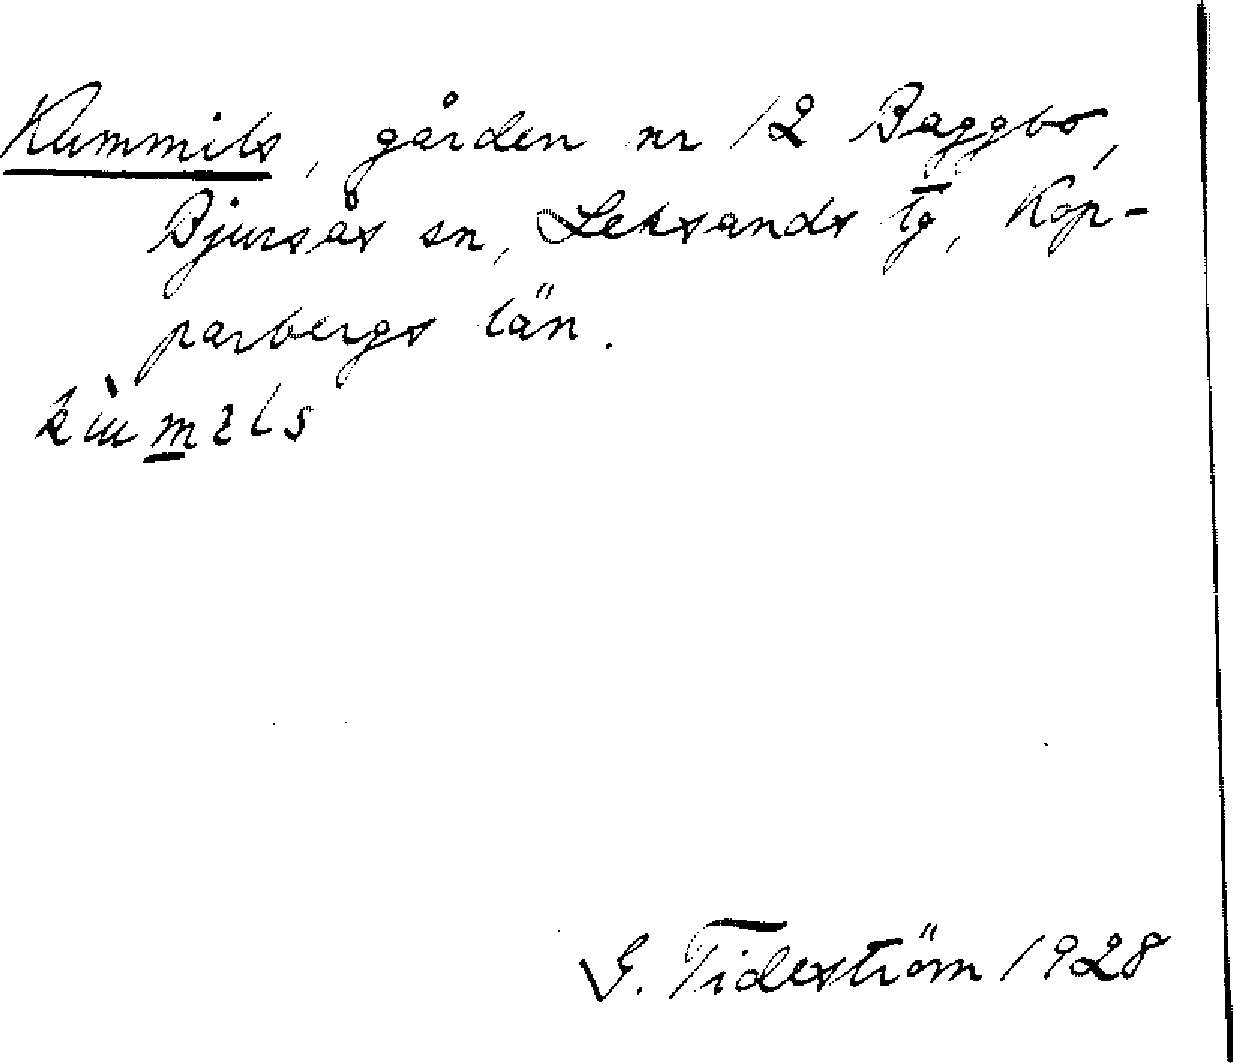 Kummils, gården nr 12 Baggbo,
Bjursås sn, Leksands tg, Kop-
parbergs län.
G. Tideström 1928